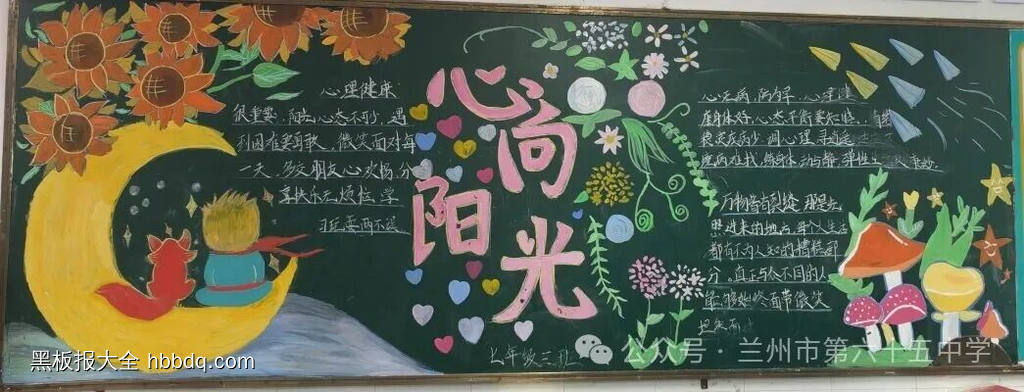 心向阳光
心理健康
很重要,阳光心态不可少,遇
到困难要勇敢,微笑面对每
一天,多交朋友心欢畅,分
享快乐无烦恼,学
习玩耍两不误
心无病,防为早,心理健
身体好,心态平衡要知晓
万物皆有裂缝,那是光
照进来的地方,每个人生活
都有不为人知的糟糕部
分,真正与众不同的人
是能够始终面带微笑
七年级三班
公众号·兰州市第六十五中学
黑板报大全 hbbdq.com